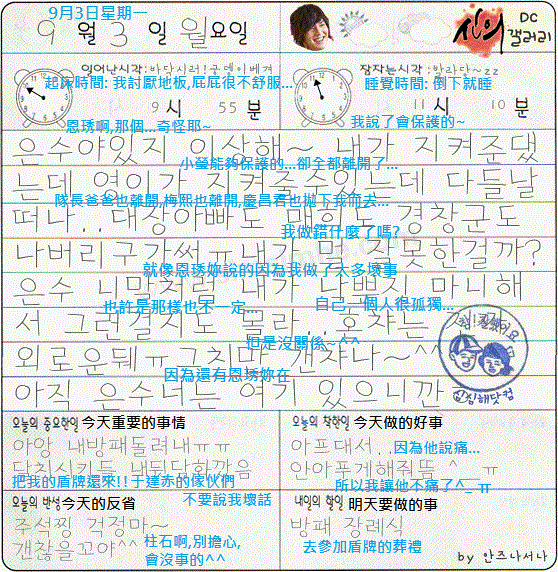 9月3日星期一
9월 3일 월요일
신의 DC 갤러리
일어난시각:바닥시러!궁뎅이베겨
잠자는시각:발라당~zz
起床時間: 我討厭地板,屁屁很不舒服...
睡覺時間: 倒下就睡
9시 55분
11시 10분
恩琇啊,那個...奇怪耶~
我說了會保護的~
은수야있지 이상해~ 내가 지켜준댔
小螢能夠保護的...卻全都離開了...
는데 영이가 지켜줄수있는데 다들날
隊長爸爸也離開,梅熙也離開,慶昌君也拋下我而去...
떠나..대장아빠도 매희도 경창군도
我做錯什麼了嗎?
나버리구갔써..내가 멀 잘못한걸까?
就像恩琇妳說的因為我做了太多壞事
은수 니말처럼 내가 나쁜짓 마니해
也許是那樣也不一定...
自己一個人很孤獨...
서 그런걸지도 몰라..혼자는
但是沒關係~^^
외로운뎅ㅠ그치만 갠차나~^^
因為還有恩琇妳在
아직 은수너는 여기 있으니깐
참!잘했어요
십심해닷컴
오늘의 중요한일 今天重要的事情
오늘의 착한일 今天做的好事
아앙 내방패돌려내ㅠㅠ
아프대서..因為他說痛...
닥치시키들 내뒷담화까음
안아푸게해줘뜸 ^__ㅠ
把我的盾牌還來!!于達赤的傢伙們
所以我讓他不痛了^_ㅠ
不要說我壞話
오늘의 반성 今天的反省
내일의 할일 明天要做的事
주석찡 걱정마~
방패 장례식
柱石啊,別擔心,
갠찮을꼬야^^
會沒事的^^
去參加盾牌的葬禮
by 안즈나서나